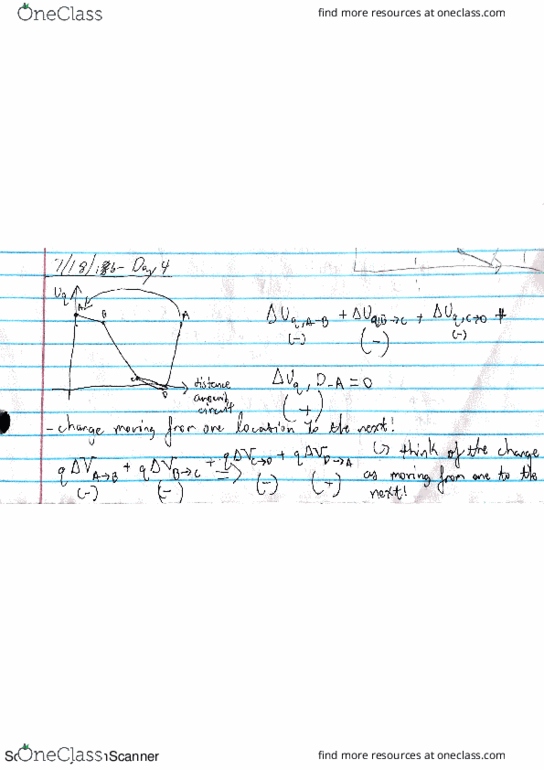 OneClass
find more resources at oneclass.com
7/18/ - Day 4
Uq
A B A
C D
distance
around
circuit
ΔUq,A-B + ΔUq,B→C + ΔUq,C→D +
(-) (-) (-)
ΔUq, D-A = 0
(+)
- change moving from one location to the next!
qΔV A→B + qΔV B→C + qΔV C→D + qΔV D→A
(-) (-) (-) (+)
↳ think of the charge
as moving from one to the
next!
OneClass
Scanner
find more resources at oneclass.com